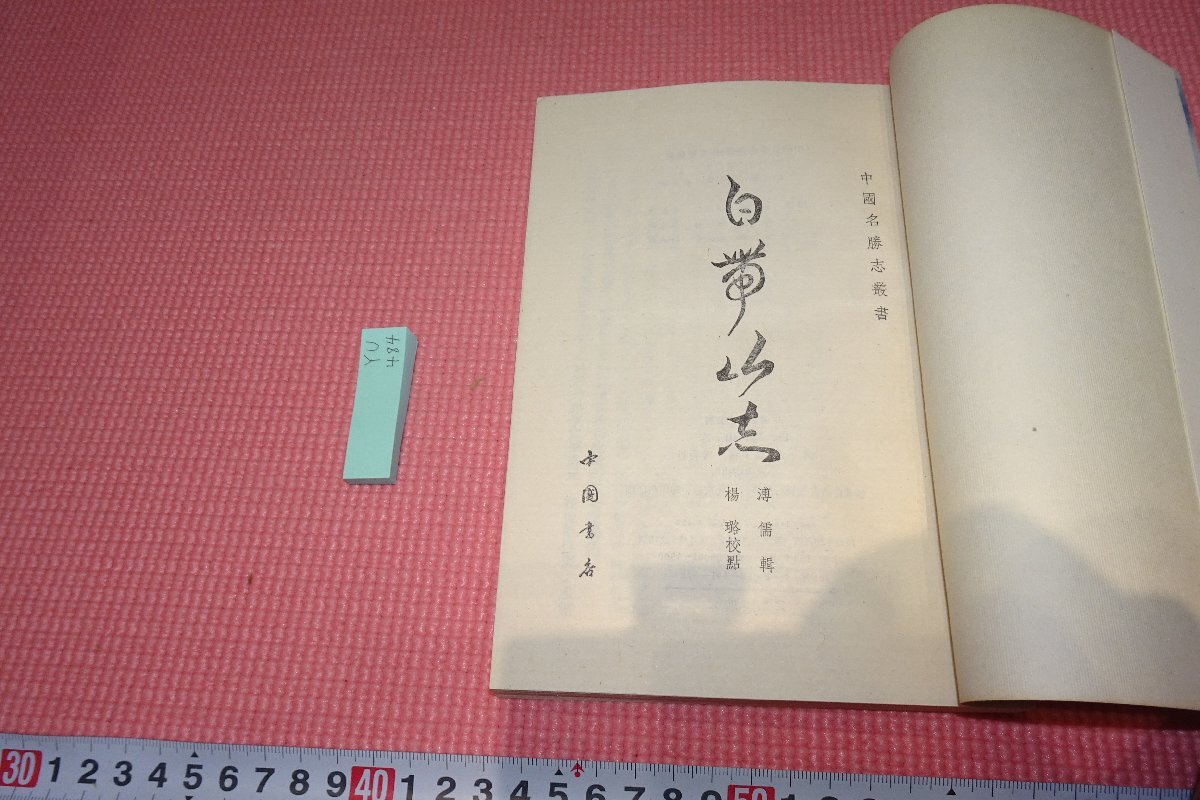 中國名勝志叢書
白帶山志
溥儒輯
楊璐校點
中國書店
484
30 1 2 3 4 5 6 7 8 9 40 1 2 3 4 5 6 7 8 9 50